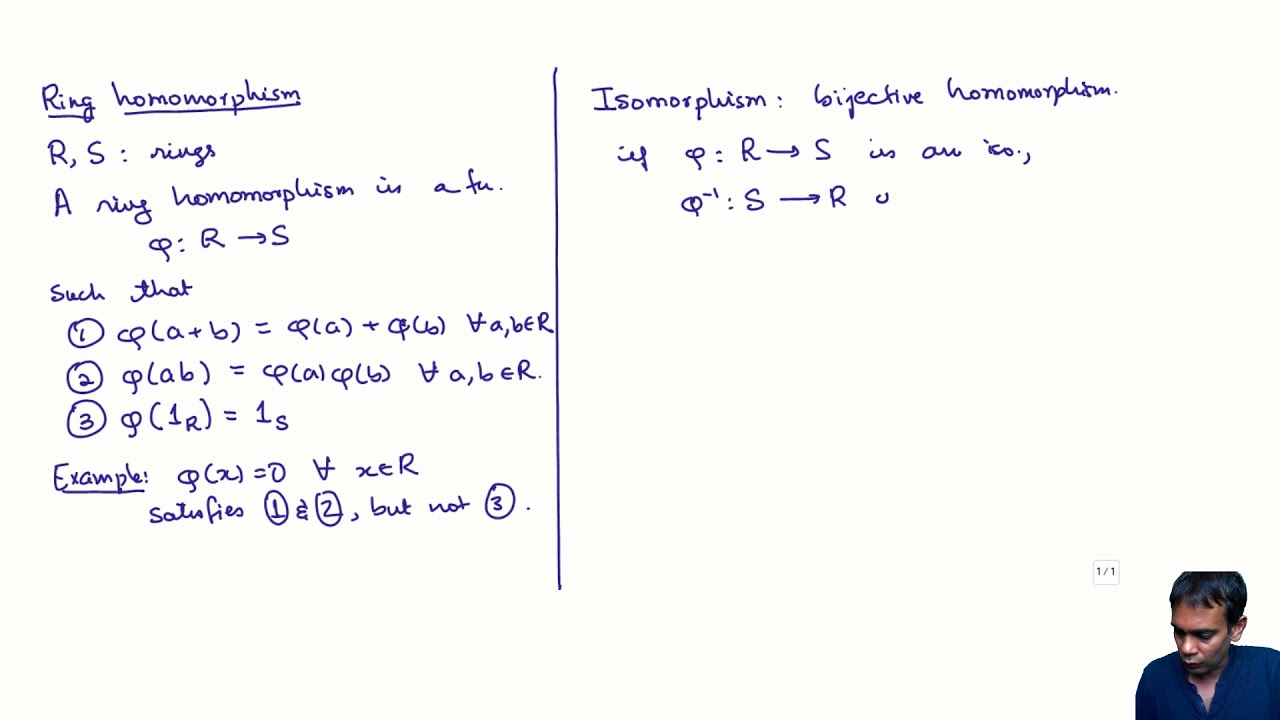 Ring homomorphism
R, S : rings
A ring homomorphism is a fn.
φ: R → S
such that
① φ(a+b) = φ(a) + φ(b) ∀ a,b ∈ R
② φ(ab) = φ(a) φ(b) ∀ a, b ∈ R.
③ φ(1_R) = 1_S
Example: φ(x) = 0 ∀ x ∈ R
satisfies ① & ②, but not ③.
Isomorphism: bijective homomorphism.
if φ: R → S is an iso.,
φ⁻¹: S → R
1 / 1